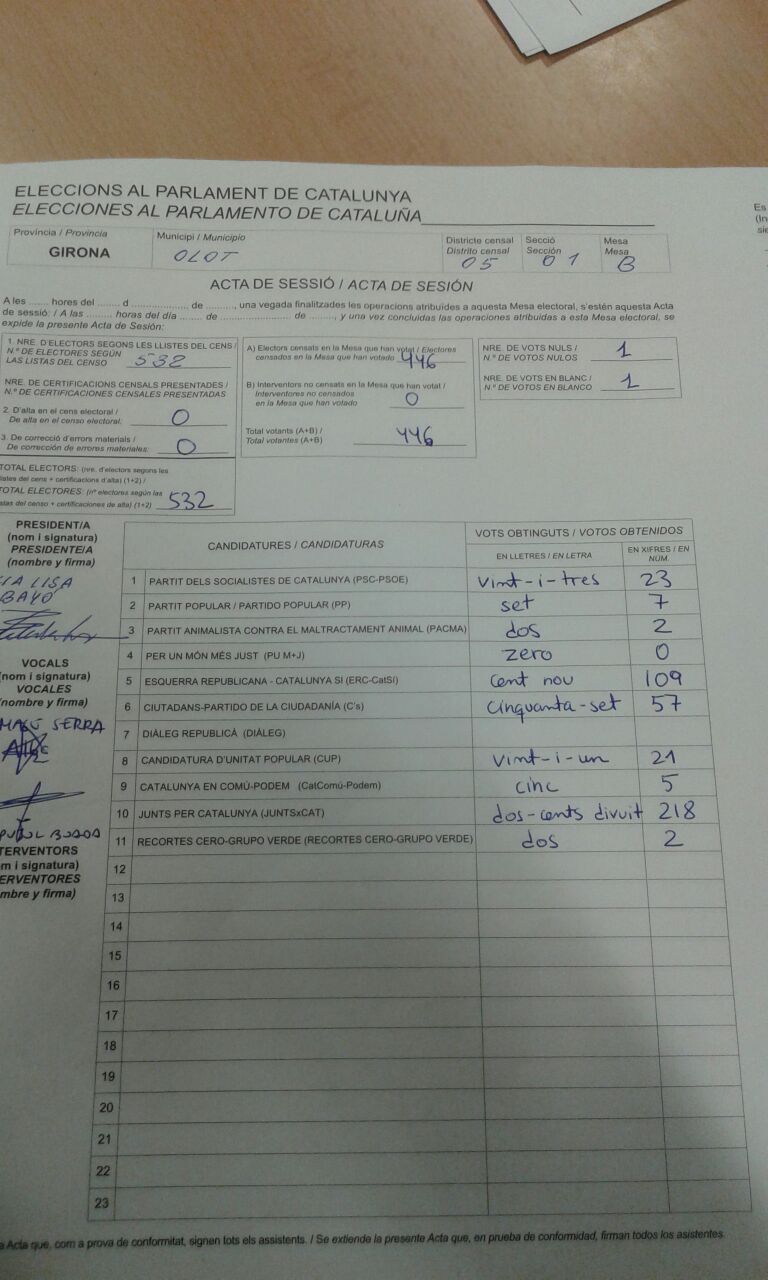 ELECCIONS AL PARLAMENT DE CATALUNYA
ELECCIONES AL PARLAMENTO DE CATALUÑA
Es
(In
sie
Província / Provincia
GIRONA
Municipi / Municipio
OLOT
Districte censal
Distrito censal
05
Secció
Sección
01
Mesa
Mesa
B
ACTA DE SESSIÓ / ACTA DE SESIÓN
A les ........ hores del ....... d ..................... de .........., una vegada finalitzades les operacions atribuïdes a aquesta Mesa electoral, s'estén aquesta Acta
de sessió: / A las ......... horas del día ....... de ..................... de ........, y una vez concluidas las operaciones atribuidas a esta Mesa electoral, se
expide la presente Acta de Sesión:
1. NRE. D'ELECTORS SEGONS LES LLISTES DEL CENS /
N.º DE ELECTORES SEGÚN
LAS LISTAS DEL CENSO 532
NRE. DE CERTIFICACIONS CENSALS PRESENTADES /
N.º DE CERTIFICACIONES CENSALES PRESENTADAS
2. D'alta en el cens electoral /
De alta en el censo electoral: 0
3. De correcció d'errors materials /
De corrección de errores materiales: 0
TOTAL ELECTORS: (nre. d'electors segons les
listes del cens + certificacions d'alta) (1+2) /
TOTAL ELECTORES: (nº electores según las
istas del censo + certificaciones de alta) (1+2) 532
A) Electors censats en la Mesa que han votat / Electores
censados en la Mesa que han votado 446
B) Interventors no censats en la Mesa que han votat /
Interventores no censados
en la Mesa que han votado 0
Total votants (A+B) /
Total votantes (A+B) 446
NRE. DE VOTS NULS /
N.º DE VOTOS NULOS 1
NRE. DE VOTS EN BLANC /
N.º DE VOTOS EN BLANCO 1
PRESIDENT/A
(nom i signatura)
PRESIDENTE/A
(nombre y firma)
LISA
BAYÓ
VOCALS
(nom i signatura)
VOCALES
(nombre y firma)
SERRA
BUSOA
TERVENTORS
m i signatura)
ERVENTORES
mbre y firma)
CANDIDATURES / CANDIDATURAS
VOTS OBTINGUTS / VOTOS OBTENIDOS
EN LLETRES / EN LETRA
EN XIFRES / EN NÚM.
1 PARTIT DELS SOCIALISTES DE CATALUNYA (PSC-PSOE) vint-i-tres 23
2 PARTIT POPULAR / PARTIDO POPULAR (PP) set 7
3 PARTIT ANIMALISTA CONTRA EL MALTRACTAMENT ANIMAL (PACMA) dos 2
4 PER UN MÓN MÉS JUST (PU M+J) zero 0
5 ESQUERRA REPUBLICANA - CATALUNYA SI (ERC-CatSí) cent nou 109
6 CIUTADANS-PARTIDO DE LA CIUDADANÍA (C's) cinquanta-set 57
7 DIÀLEG REPUBLICÀ (DIÀLEG)
8 CANDIDATURA D'UNITAT POPULAR (CUP) vint-i-un 21
9 CATALUNYA EN COMÚ-PODEM (CatComú-Podem) cinc 5
10 JUNTS PER CATALUNYA (JUNTSxCAT) dos-cents divuit 218
11 RECORTES CERO-GRUPO VERDE (RECORTES CERO-GRUPO VERDE) dos 2
12
13
14
15
16
17
18
19
20
21
22
23
a Acta que, com a prova de conformitat, signen tots els assistents. / Se extiende la presente Acta que, en prueba de conformidad, firman todos los asistentes.